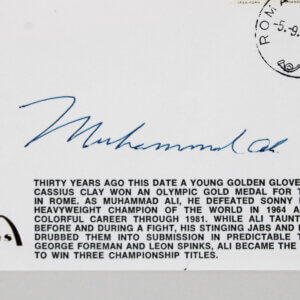 ROMA
-5.-9.
Muhammad Ali
THIRTY YEARS AGO THIS DATE A YOUNG GOLDEN GLOVE
CASSIUS CLAY WON AN OLYMPIC GOLD MEDAL FOR T
IN ROME. AS MUHAMMAD ALI, HE DEFEATED SONNY
HEAVYWEIGHT CHAMPION OF THE WORLD IN 1964 A
COLORFUL CAREER THROUGH 1981. WHILE ALI TAUNT
BEFORE AND DURING A FIGHT, HIS STINGING JABS AND
DRUBBED THEM INTO SUBMISSION IN PREDICTABLE T
GEORGE FOREMAN AND LEON SPINKS, ALI BECAME THE
TO WIN THREE CHAMPIONSHIP TITLES.